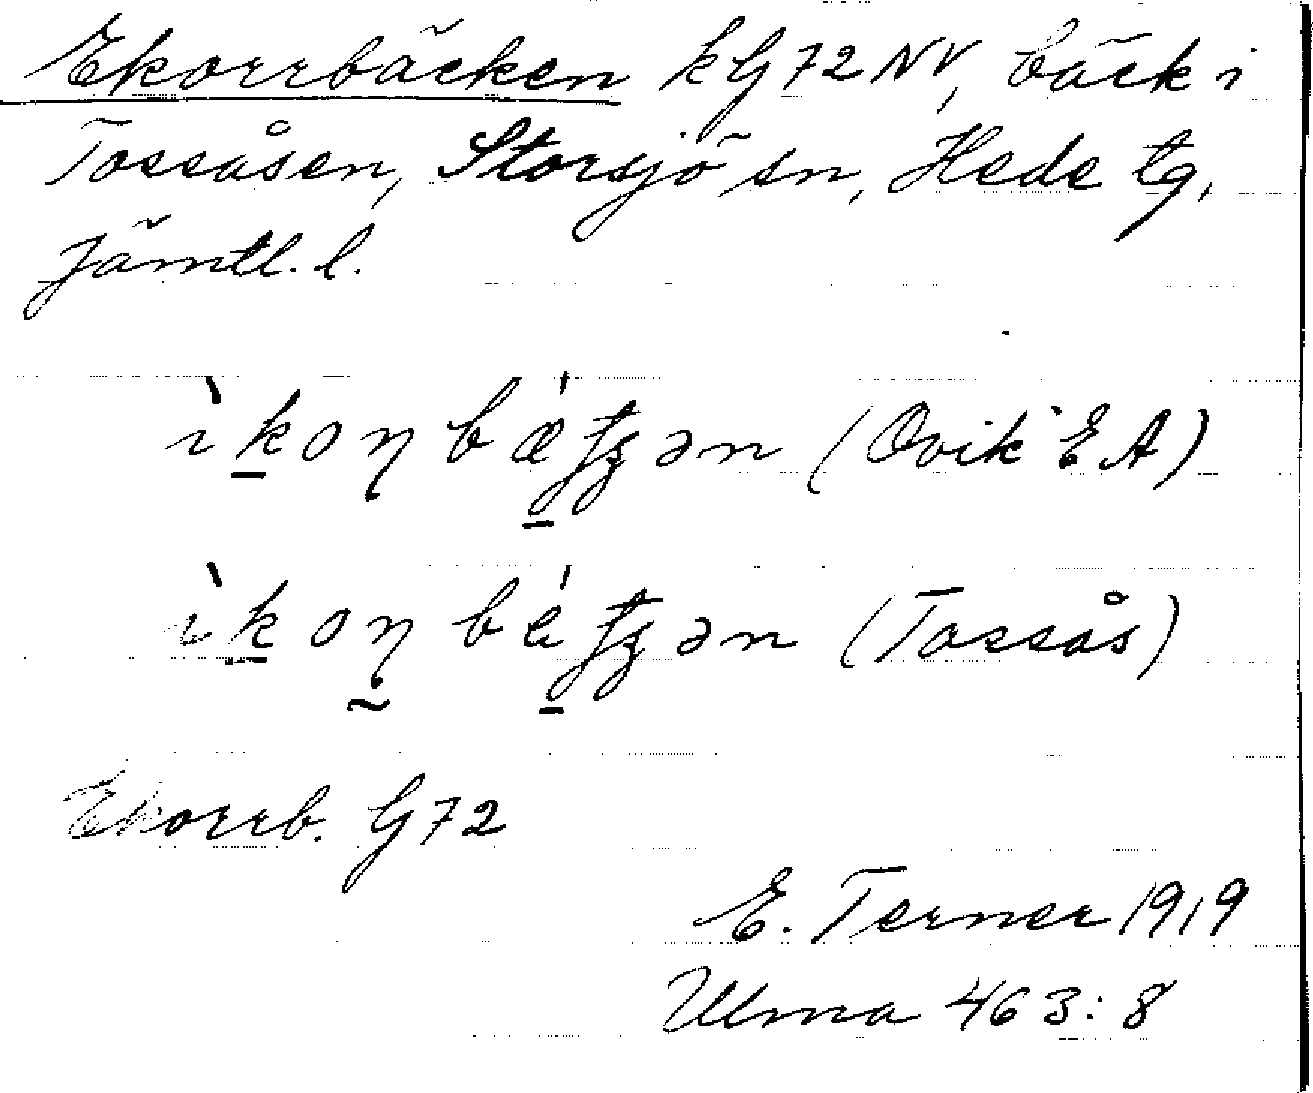 Ekorrbäcken kG72NV, bäck i
Tossåsen, Storsjö sn, Hede tg,
Jämtl. l.
ìkoŋ bǽʈʂən (Ovik EA)
ìkoŋ béʈʂən (Tossås)
Ekorrb. G72
E. Terner 1919
Ulma 463:8